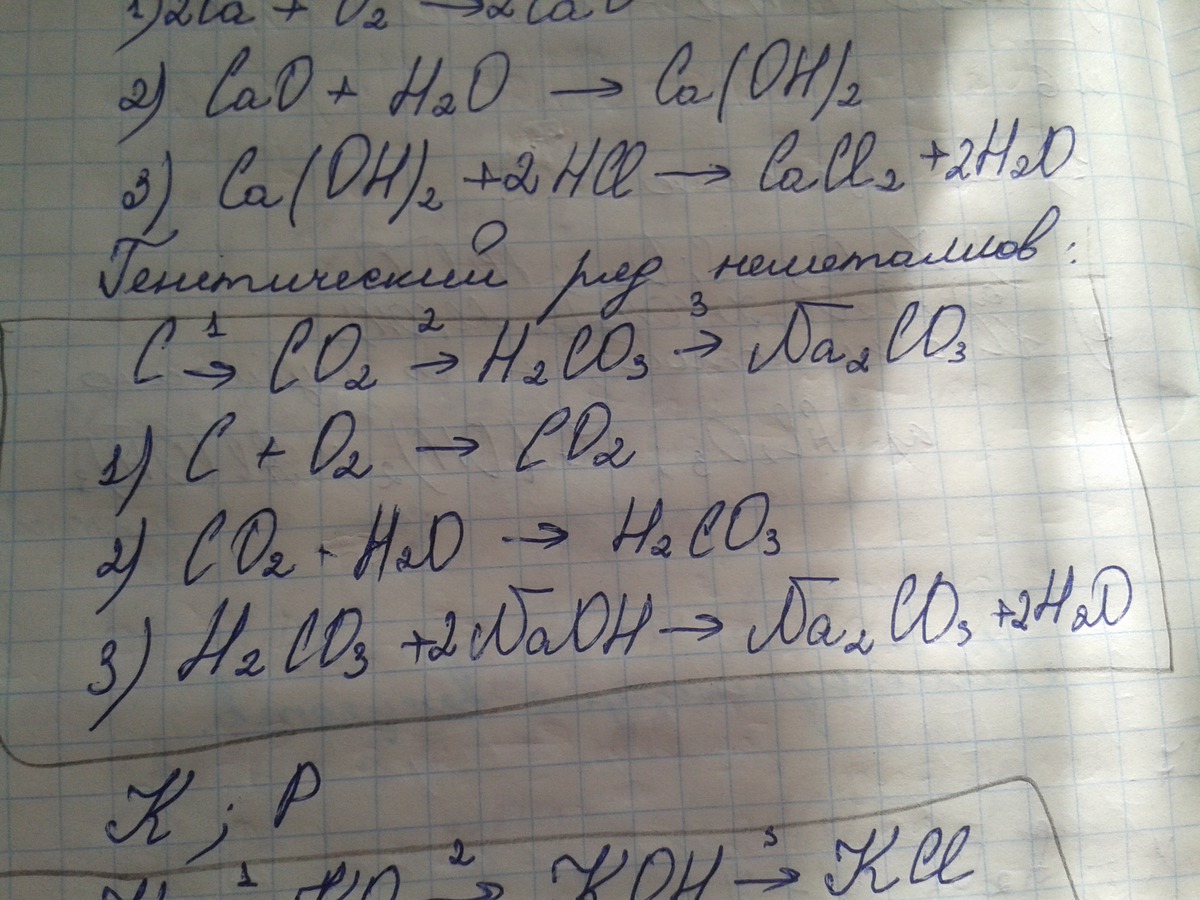 1) 2Ca + O₂ → 2CaO
2) CaO + H₂O → Ca(OH)₂
3) Ca(OH)₂ + 2HCl → CaCl₂ + 2H₂O
Генетический ряд неметаллов:
C →¹ CO₂ →² H₂CO₃ →³ Na₂CO₃
1) C + O₂ → CO₂
2) CO₂ + H₂O → H₂CO₃
3) H₂CO₃ + 2NaOH → Na₂CO₃ + 2H₂O
K ; P
→² KOH →³ KCl